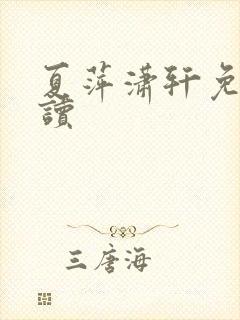 夏萍潇轩免
讀
三唐海